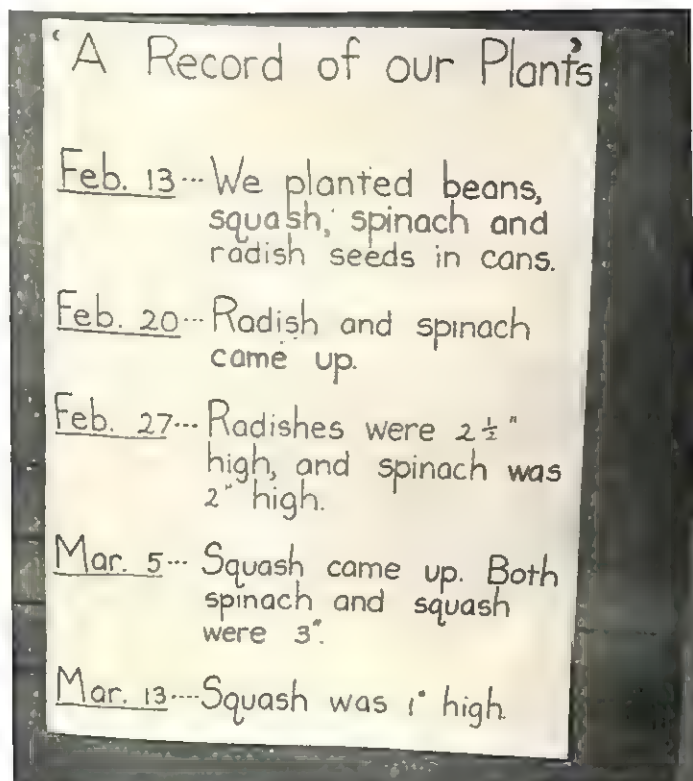 'A Record of our Plants'
Feb. 13---We planted beans,
squash, spinach and
radish seeds in cans.
Feb. 20---Radish and spinach
came up.
Feb. 27---Radishes were 2 ½"
high, and spinach was
2" high.
Mar. 5---Squash came up. Both
spinach and squash
were 3".
Mar. 13----Squash was 1" high.